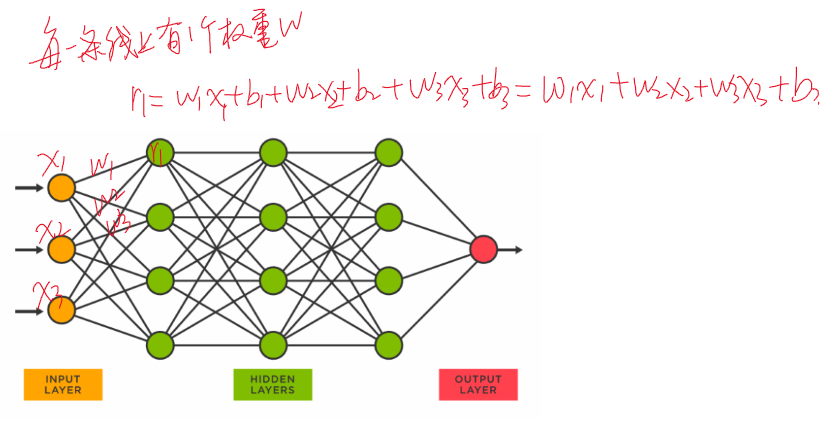 每一条线上有1个权重w
r1=w1x1+b1+w2x2+b2+w3x3+b3=w1x1+w2x2+w3x3+b
x1
w1
r1
w2
w3
x2
x3
INPUT
LAYER
HIDDEN
LAYERS
OUTPUT
LAYER